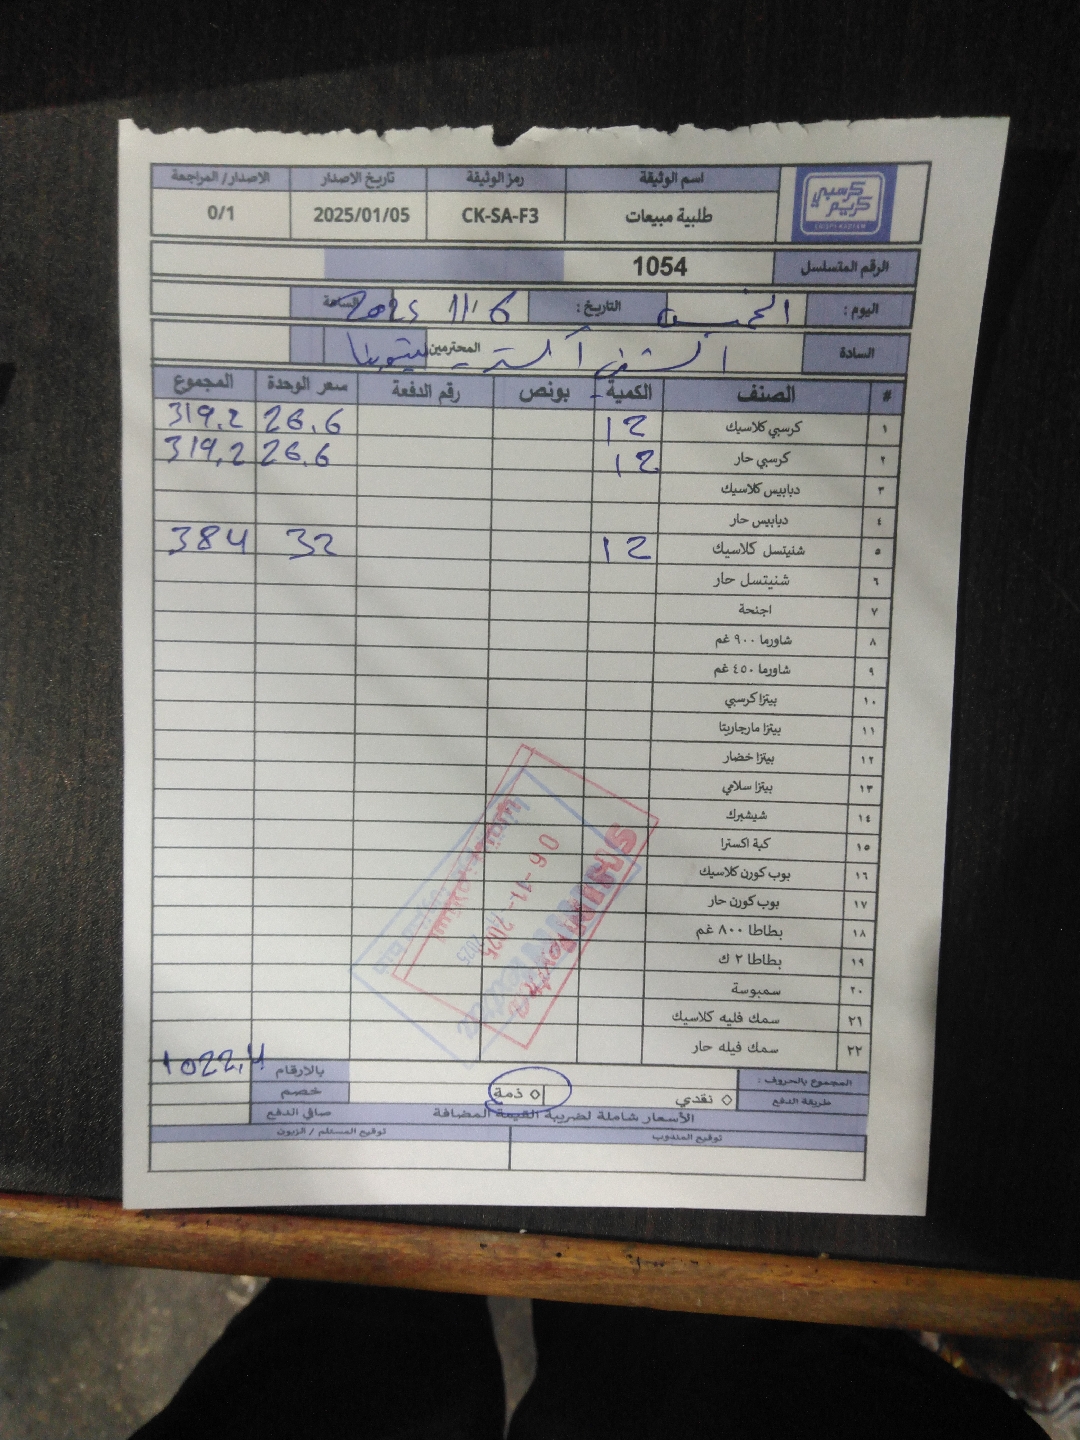 كرسبي كريم
اسم الوثيقة رمز الوثيقة تاريخ الاصدار الاصدار/ المراجعة
طلبية مبيعات CK-SA-F3 2025/01/05 0/1
الرقم المتسلسل 1054
اليوم : الخميس التاريخ : 6/11/2025 الساعة
السادة المحترمين
# الصنف الكمية بونص رقم الدفعة سعر الوحدة المجموع
١ كرسبي كلاسيك 12 26.6 319.2
٢ كرسبي حار 12 26.6 319.2
٣ دبابيس كلاسيك
٤ دبابيس حار
٥ شنيتسل كلاسيك 12 32 384
٦ شنيتسل حار
٧ اجنحة
٨ شاورما ٩٠٠ غم
٩ شاورما ٤٥٠ غم
١٠ بيتزا كرسبي
١١ بيتزا مارجاريتا
١٢ بيتزا خضار
١٣ بيتزا سلامي
١٤ شيشبرك
١٥ كبة اكسترا
١٦ بوب كورن كلاسيك
١٧ بوب كورن حار
١٨ بطاطا ٨٠٠ غم
١٩ بطاطا ٢ ك
٢٠ سمبوسة
٢١ سمك فليه كلاسيك
٢٢ سمك فيله حار
06-11-2025
المجموع بالحروف : بالارقام 1022.4
طريقة الدفع ◊ نقدي ◊ ذمة خصم
الأسعار شاملة لضريبة القيمة المضافة صافي الدفع
توقيع المندوب توقيع المستلم / الزبون